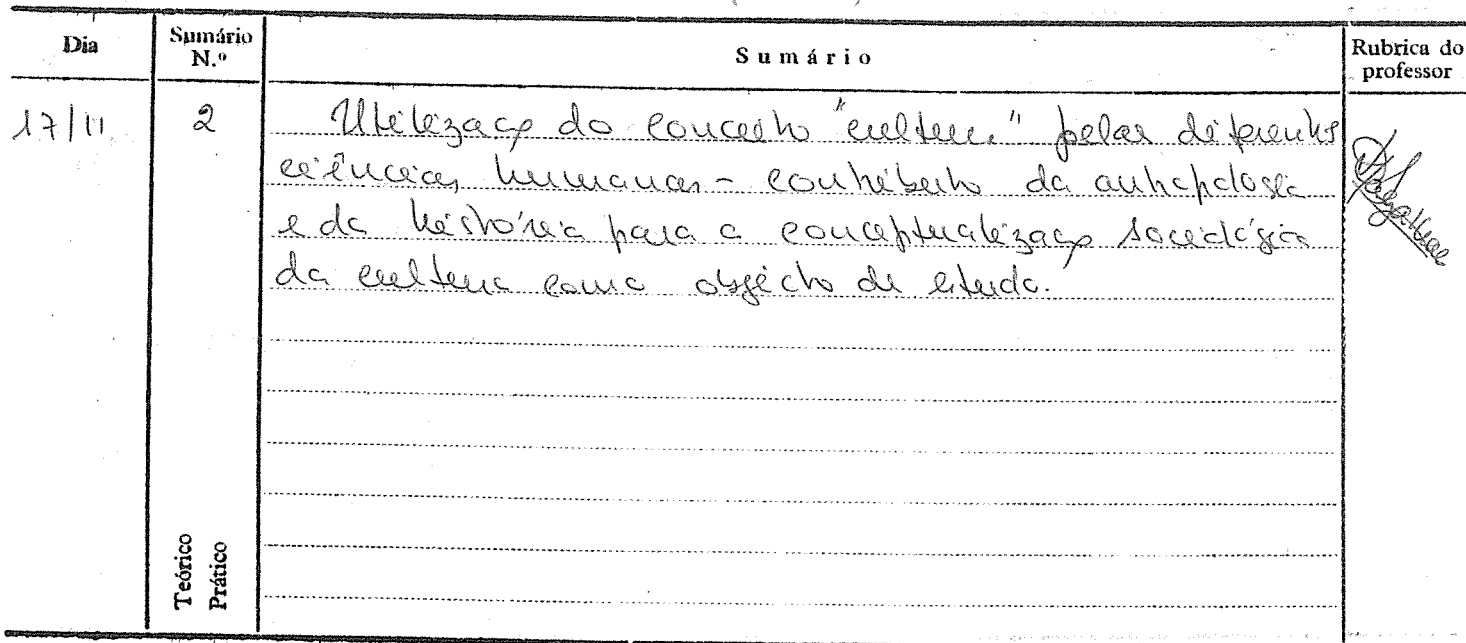 Dia Sumário N.º Sumário Rubrica do professor
17/11 2 Utilização do conceito "cultura" pelas diferentes
ciências humanas - contributo da antropologia
e da história para a conceptualização sociológica
da cultura como objécto de estudo.
Teórico
Prático